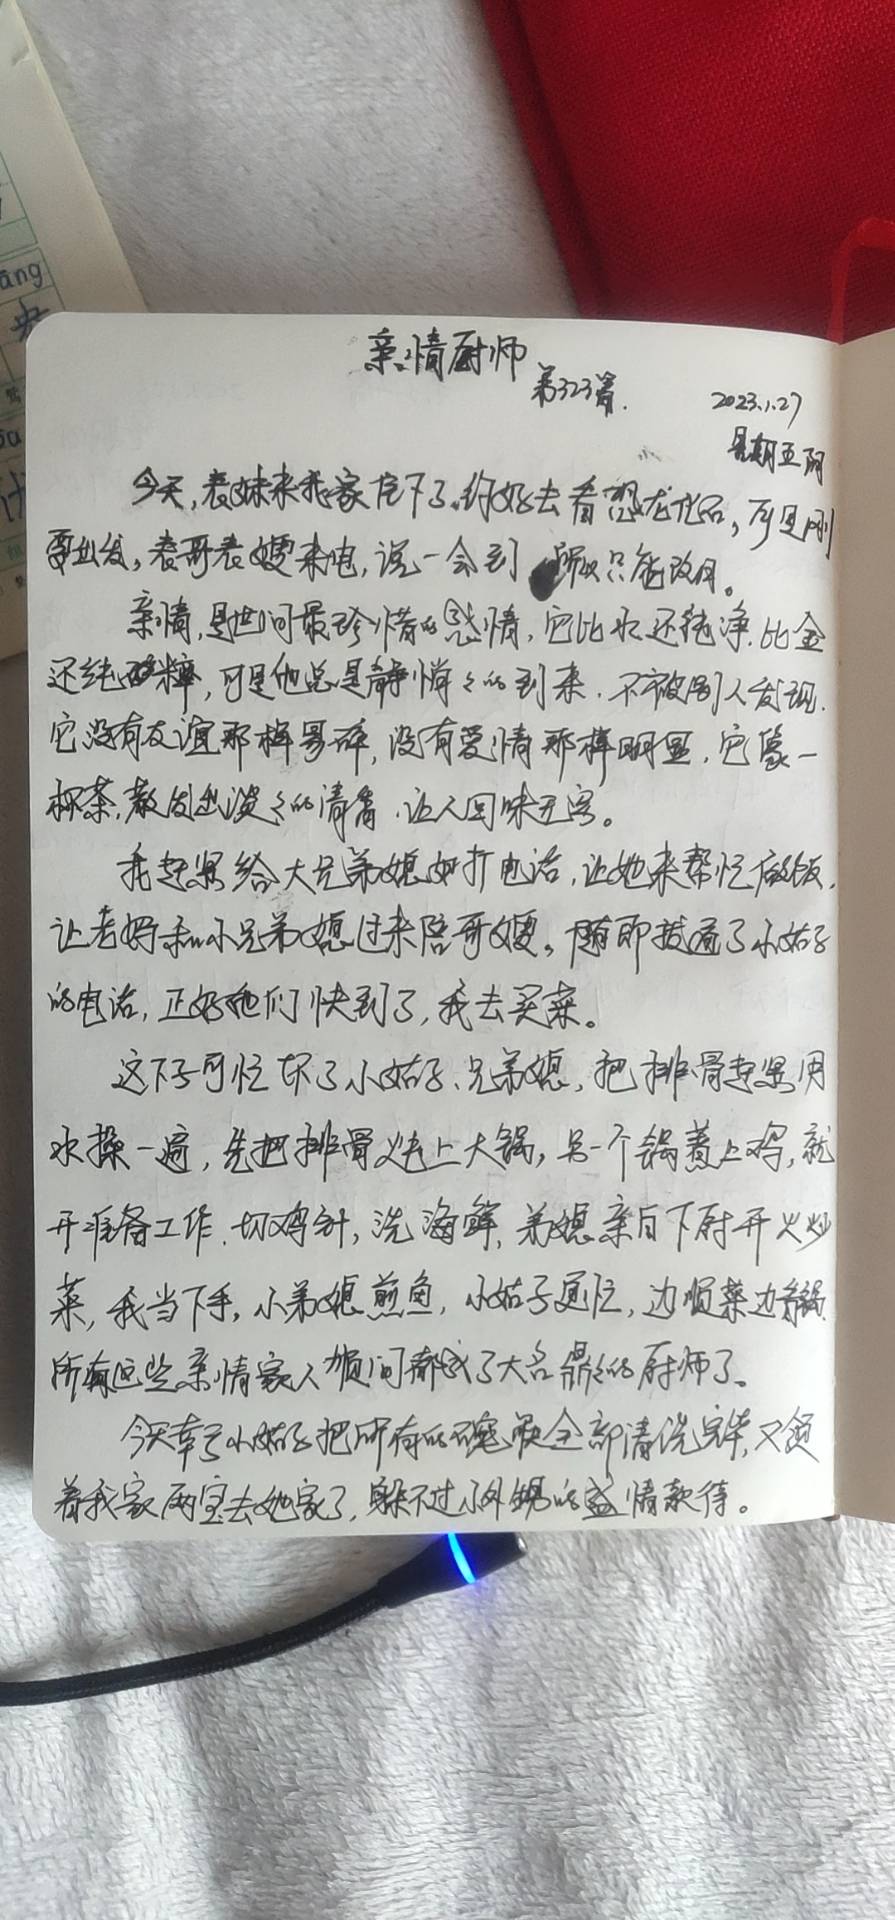 亲情厨师
第323篇.
2023.1.27
星期五阴
今天,表妹来我家住下了,约好去看恐龙化石,可是刚
要出发,表哥表嫂来电,说一会到 所以只能改日。
亲情,是世间最珍惜的感情,它比水还纯净,比金
还纯粹,可是他总是静悄々的到来,不被别人发现.
它没有友谊那样易碎,没有爱情那样明显,它像一
杯茶,散发出淡々的清香,让人回味无穷。
我赶紧给大兄弟媳妇打电话,让她来帮忙做饭,
让老妈和小兄弟媳过来陪哥嫂。随即拨通了小姑子
的电话,正好她们快到了,我去买菜。
这下子可忙坏了小姑子、兄弟媳,把排骨赶紧用
水操一遍,先把排骨炖上大锅,另一个锅蒸上鸡,就
开准备工作,切鸡针,洗海鲜,弟媳亲自下厨开火炒
菜,我当下手,小弟媳煎鱼,小姑子更忙,边顺菜边看锅,
所有这些亲情家人顿间都成了大名鼎々的厨师了。
今天幸亏小姑子把所有的碗筷全部清洗完毕,又领
着我家两宝去她家了,躲不过小外甥的盛情款待。
āng